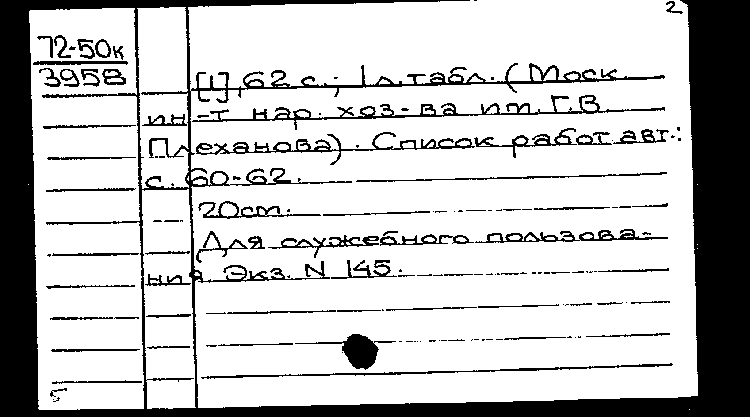 2
72-50к
3958
[1], 62 с.; 1 л. табл. (Моск.
ин-т нар. хоз-ва им. Г.В.
Плеханова). Список работ авт.:
с. 60-62.
20см.
Для служебного пользова-
ния. Экз. N 145.
5